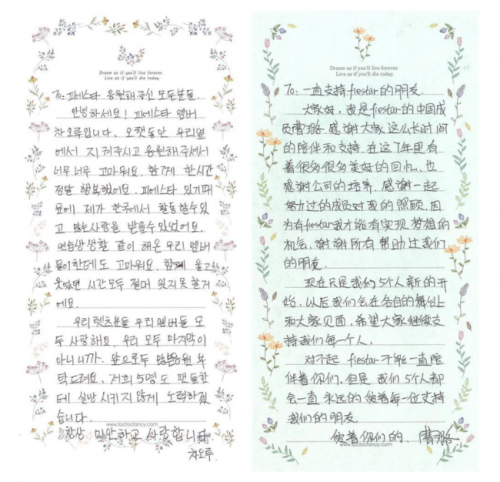 Dream as if you'll live forever.
Live as if you'll die today.
To: 피에스타 응원해주신 모든분들.
안녕하세요! 피에스타 멤버
차오루입니다. 오랫동안 우리옆
에서 지켜주시고 응원해주셔서
너무너무 고마워요. 함께 한시간
정말 행복했어요. 피에스타 있기때
문에 제가 한국에서 활동할수있
고 많은사랑을 받을수있었어요.
연습생생활 같이 해온 우리 멤버
들이한테도 고마워요. 함께 울고
웃었던 시간모두 절대 잊지못할거
에요.
우리 렛츠분들 우리 멤버들 모
두 사랑해요. 우리 모두 마지막이
아니니까. 앞으로두 부
탁드려요. 저희 5명도 팬들한
테 실망시키지 않게 노력하겠
습니다.
항상 미안하고 사랑합니다
차오루.
www.fochofancy.com
Dream as if you'll live forever.
Live as if you'll die today.
To: 一直支持fiestar的朋友.
大家好，我是fiestar的中国成
员曹璐. 感谢大家这么长时间
的陪伴和支持. 在这了年里有
着很多很多美好的回忆. 也
感谢公司的培养. 感谢一起
努力过的成员对我的照顾. 因
为有fiestar我才能有实现梦想的
机会. 谢谢所有帮助过我们
的朋友.
现在只是我们5个人新的开
始. 从后我们会在各自的舞台
和大家见面. 希望大家继续支
持我们每一个人.
对不起 fiestar不能一直陪
伴着你们. 但是我们5个人都
会一直永远的 每一位支持
我们的朋友.
你们的. 曹璐